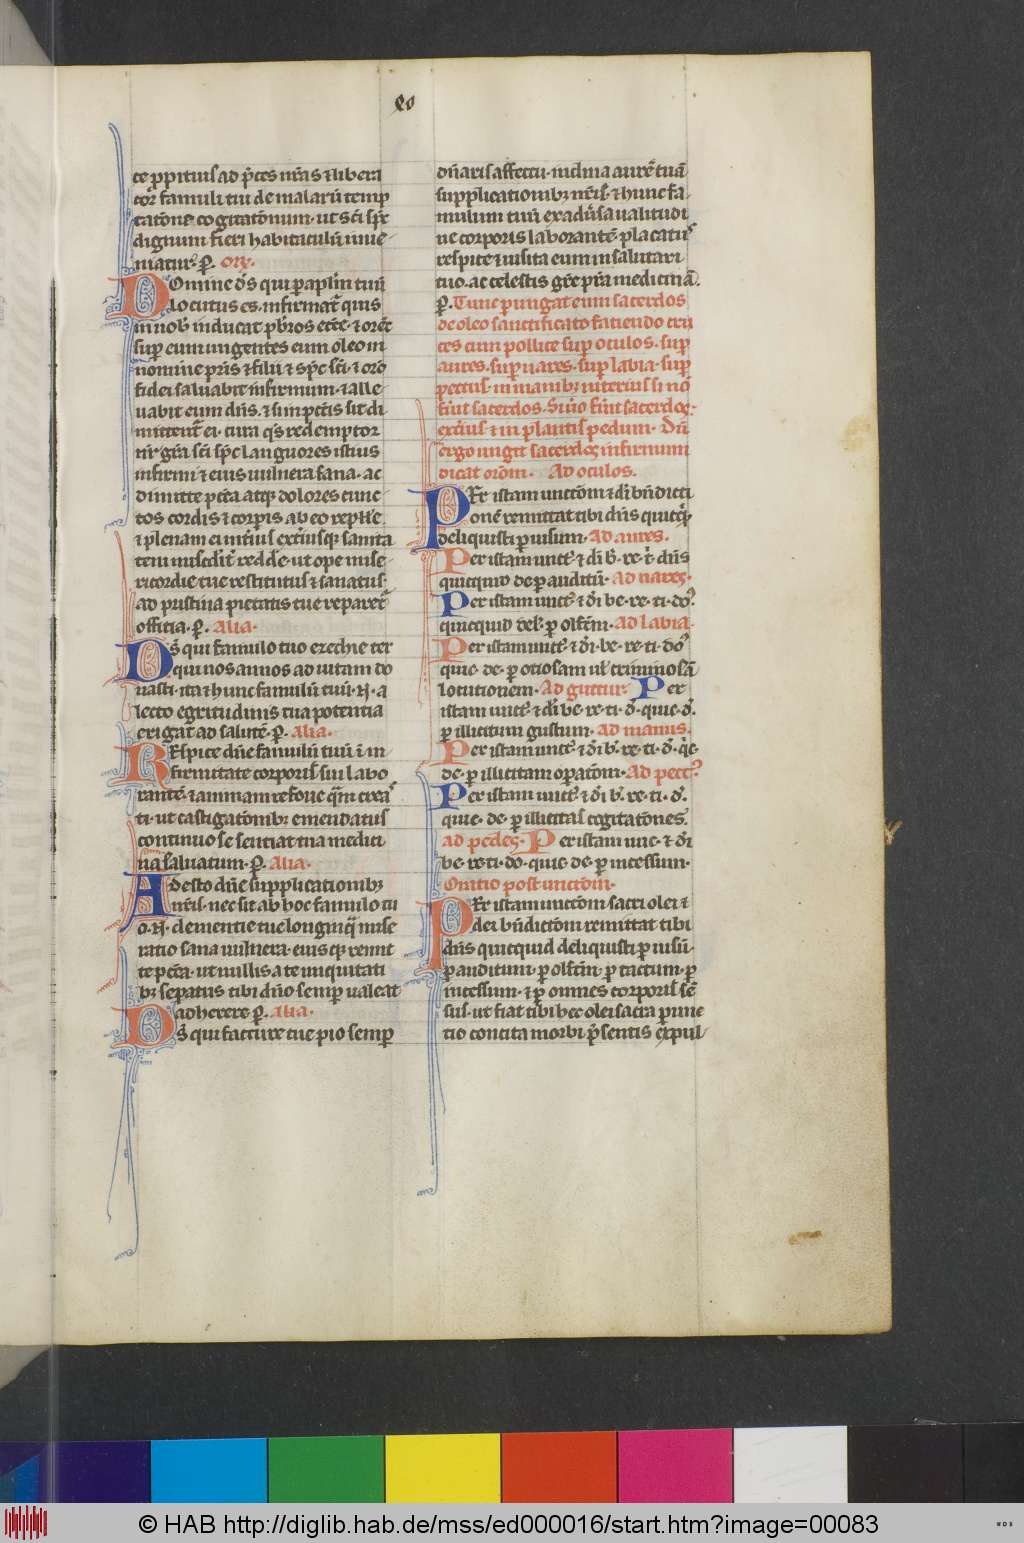 lo
te ꝓpitius ad p̄ces nr̄as ⁊ libera
cor famuli tui de malarū temp
tatōne cogitatōnum· ut sc̄i sp̄c
dignum fieri habitaculū inue
niatur· ꝑ. or̄.
DOmine ds̄ qui ꝑ apl̄m tuū
locutus es· infirmat̄ quis
in nob̄ inducat p̄b̄ros eccē· ⁊ orēt
suꝑ eum ungentes eum oleo in
nomine pr̄is ⁊ filii ⁊ sp̄c sc̄i· ⁊ orō
fidei saluabit infirmum· ⁊ alle
uabit eum dn̄s· ⁊ si in pctīs sit di
mittent̄ ei· cura qs̄ redemptor
nr̄ gr̄a sc̄i sp̄c languores istius
infirmi ⁊ eius uulnera sana· ac
dimitte pctā atq; dolores cunc
tos cordis ⁊ corꝑis ab eo repelle
⁊ plenam ei int̄ius ext̄iusq; sanita
tem misc̄dit̄ redde· ut ope mise
ricordie tue restitutus ⁊ sanatus·
ad pristina pietatis tue reparet̄
officia· ꝑ. Alia·
Ds̄ qui famulo tuo ezechie ter
qui nos annos ad uitam do
nasti· ita ⁊ hunc famulū tuū· N̄· a
lecto egritudinis tua potentia
erigat̄ ad salutē· ꝑ. Alia·
REspice dn̄e famulū tuū ī in
firmitate corporis sui labo
rantē· ⁊ animam refoue quā creas
ti· ut castigatōnibꝫ emendatus
continuo se sentiat tua medici
na saluatum· ꝑ. Alia·
Adesto dn̄e supplicationibꝫ
nr̄is· nec sit ab hoc famulo tu
o· N̄· clementie tue longinq̄ mise
ratio sana uulnera· eiusq; remit
te pctā· ut nullis a te iniquitati
bꝫ sepatus tibi dn̄o semꝑ ualeat
adherere ꝑ. Alia·
Ds̄ qui facture tue pio semꝑ
dn̄aris affectu· inclina aurē tuā
supplicationibꝫ nr̄is· ⁊ hunc fa
mulum tuū ex aduersa ualitudi
ne corporis laborantē placatus
respice ⁊ uisita eum in salutari
tuo· ac celestis gr̄e p̄sta medicinā·
ꝑ. Tunc ꝑungat eum sacerdos
de oleo sanctificato faciendo cru
ces cum pollice suꝑ oculos· suꝑ
aures· suꝑ nares· suꝑ labia· suꝑ
pectus· in manibꝫ interius si nō
fūit sacerdos· Si uō fūit sacerdos·
ext̄ius ⁊ in plantis pedum· Dū
ergo ungit sacerdos infirmum
dicat orōm· Ad oculos·
PEr istam unctōm ⁊ dī bn̄dicti
onē remittat tibi dn̄s quicq̄
deliquisti ꝑ uisum· Ad aures·
Per istam unct· ⁊ dī b· re· t· dn̄s
quicquid de· ꝑ auditū· Ad nares·
Per istam unct· ⁊ dī be· re· ti· do·
quicquid del· ꝑ olfctm· Ad labia·
Per istam unct· ⁊ dī· be· re· ti· do·
quic· de· ꝑ otiosam ul̄ criminosā
locutionem· Ad guttur· Per
istam unct· ⁊ dī be· re· ti· d· quic· d·
ꝑ illicitum gustum· Ad manus·
Per istam unct· ⁊ dī b· re· ti· d· q̄c·
de· ꝑ illicitam oꝑatōm· Ad pect·
Per istam unct· ⁊ dī b· re· ti· d·
quic· de· ꝑ illicitas cogitatōnes·
ad pedes· Per istam unc· ⁊ dī
be· re· ti· do· quic· de· ꝑ incessum·
Oratio post unctōm·
PEr istam unctōm sacri olei ⁊
dei bn̄dictōm remittat tibi
dn̄s quicquid deliquisti ꝑ uisū·
ꝑ auditum· ꝑ olfctm· ꝑ tactum· ꝑ
incessum· ⁊ ꝑ omnes corporis sē
sus· ut fiat tibi hec olei sacra ꝑunc
tio concita morbi p̄sentis expul
© HAB http://diglib.hab.de/mss/ed000016/start.htm?image=00083